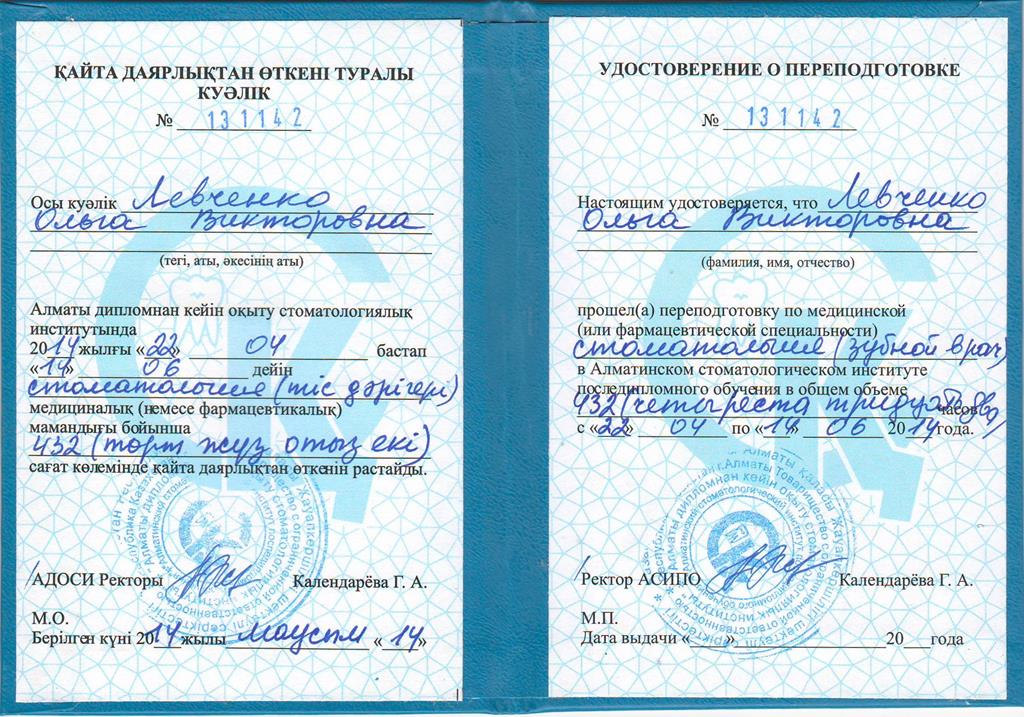 ҚАЙТА ДАЯРЛЫҚТАН ӨТКЕНІ ТУРАЛЫ
КУӘЛІК
№ 131142
Осы куәлік Левченко
Ольга Викторовна
(тегі, аты, әкесінің аты)
Алматы дипломнан кейін оқыту стоматологиялық
институтында
2014 жылғы «22» 04 бастап
«14» 06 дейін
стоматология (тіс дәрігері)
медициналық (немесе фармацевтикалық)
мамандығы бойынша
432 (төрт жүз отыз екі)
сағат көлемінде қайта даярлықтан өткенін растайды.
АДОСИ Ректоры Календарёва Г. А.
М.О.
Берілген күні 2014 жылы маусым «14»
УДОСТОВЕРЕНИЕ О ПЕРЕПОДГОТОВКЕ
№ 131142
Настоящим удостоверяется, что Левченко
Ольга Викторовна
(фамилия, имя, отчество)
прошел(а) переподготовку по медицинской
(или фармацевтической специальности)
стоматология (зубной врач)
в Алматинском стоматологическом институте
последипломного обучения в общем объеме
432 (четыреста тридцать два) часов
с «22» 04 по «14» 06 2014 года.
Ректор АСИПО Календарёва Г. А.
М.П.
Дата выдачи « » 20 года